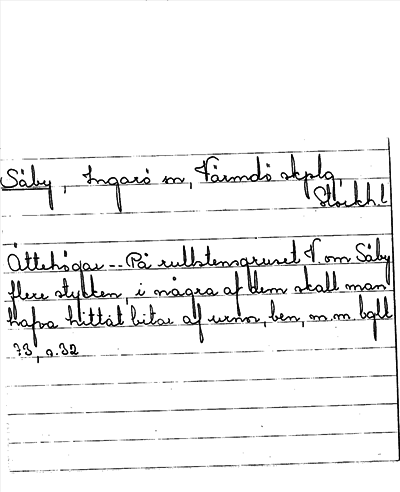 Säby, Ingarö sn, Värmdö skplg,
Stockh. l
Ättehögar -- På rullstensgruset V. om Säby
flere stycken, i några af dem skall man
hafva hittat bitar af urnor, ben, m.m. bgll
73, s. 32